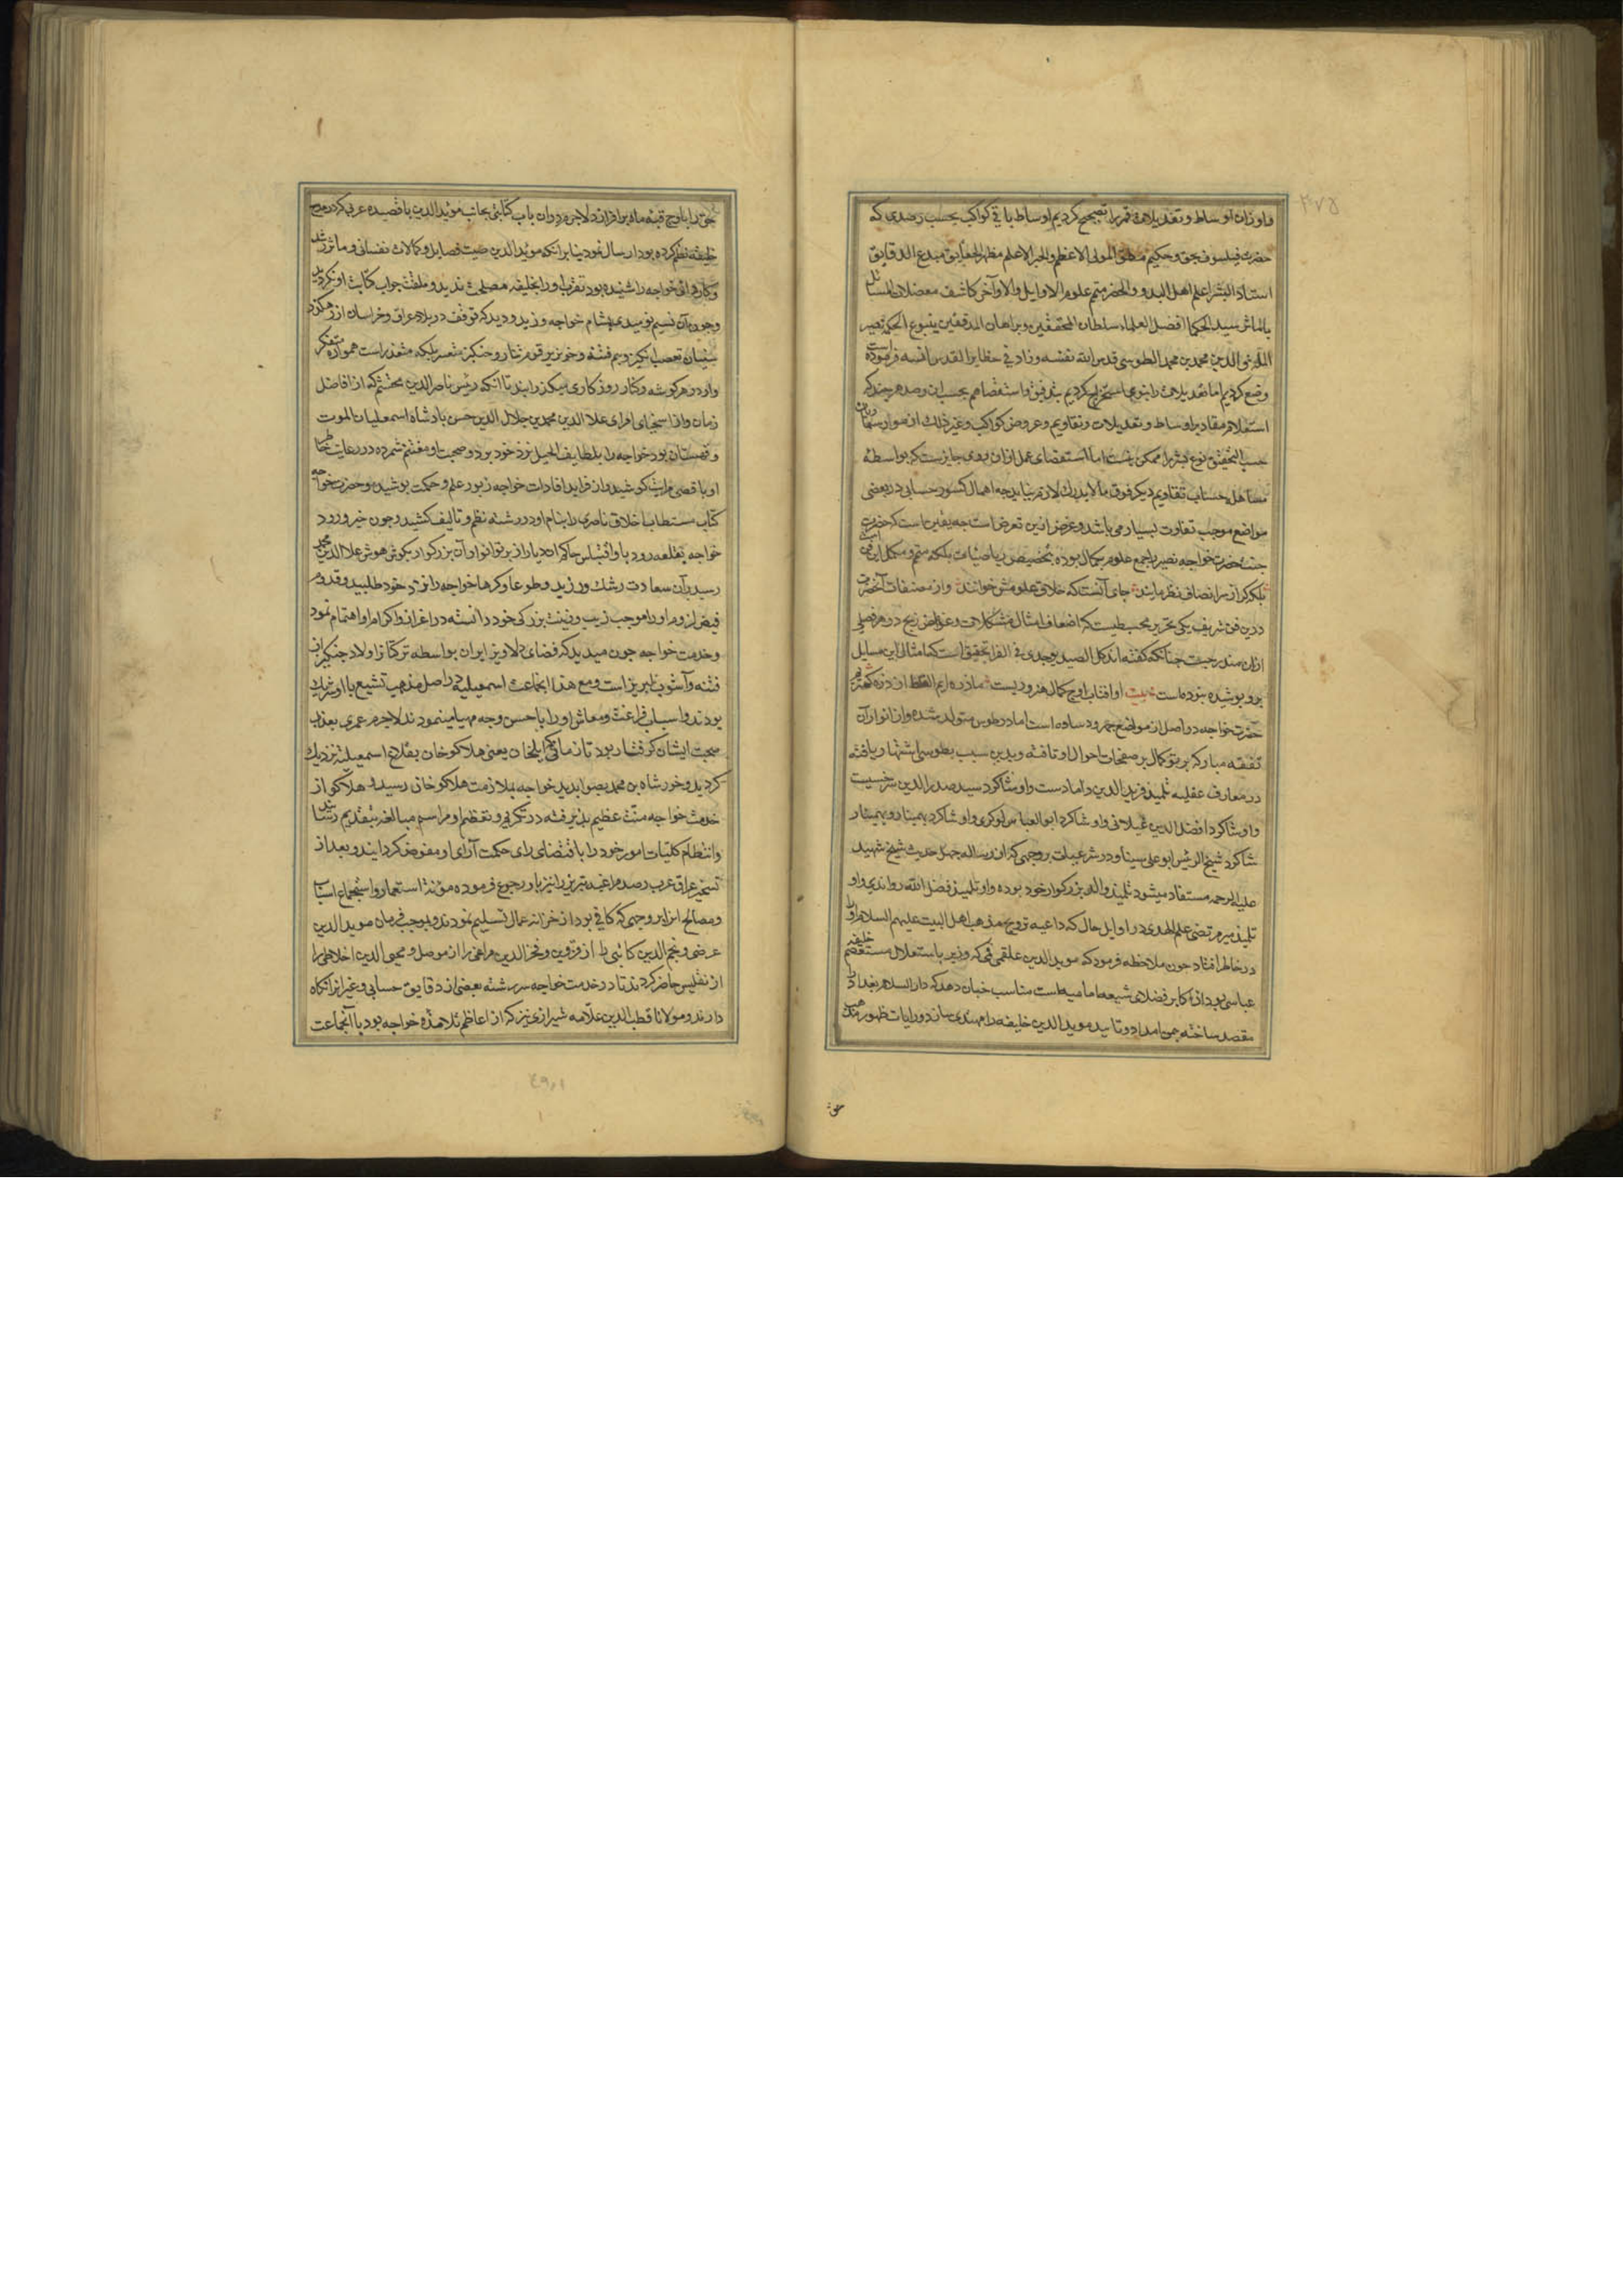 واوزان اوساط وتعدیلات قمر را تصحیح کردیم اوساط باقی کواکب بحسب رصدی که
حضرت فیلسوف بحق وحکیم مطلق المولی الاعظم والحبر الاعلم مظهر الحقایق مبدع الدقایق
استاد البشر اعلم اهل البدو والحضر متمم علوم الاوایل والاواخر کاشف معضلات المسائل
بالماثر سید الحکما افضل العلماء سلطان المحققین وبرهان المدققین ینبوع الحکمة نصیر
الملة والدین محمد بن محمد الطوسی قدس الله نفسه وزاد فی حظایر القدس انسه فرموده است
وضع کردیم اما تعدیلات را بنوی استخراج کردیم بتدقیق واستقصا هم بحسب ان رصد هرچند که
استعلام مقادیر اوساط وتعدیلات وتقاویم وعروض کواکب وغیر ذلک از
حسب التحقیق نوع بشر را ممکن نیست اما استقصای عمل ازان روی جایزست که بواسطه
مساهله حساب تقاویم دیگر فوق مالا یدرک لازم نیاید چه اهمال کسور حسابی در بعضی
مواضع موجب تفاوت بسیار می باشد وغرض ازین تعرض است چه یقین است که حضرت
جنت حضرت خواجه نصیر را جمیع علوم بکمال بوده بتخصیص ریاضیات بلکه متمم ومکمل این فن است
بلکه گر از سر انصاف نظر نمایند جای آنست که خلاق علومش خوانند واز مصنفات آنحضرت
درین فن شریف یکی تحریر مجسطیست که اضعاف امثال مشکلات وغوامض زیج در هر فصلی
ازان مندرجست چنانکه گفته اند کل الصید یوجد فی الفرا تحقیق است که امثال این مسایل
برو پوشیده نبوده است بیت او افتاب اوج کمال هنروریست ما ذره ایم
حضرت خواجه در اصل از موضع جهرود ساوه است اما در طوس متولد شده واز انوار آن
بقعه مبارکه پرتو کمال بر صفحات احوال او تافته وبدین سبب بطوسی اشتهار یافته
در معارف عقلیه تلمیذ فرید الدین دامادست واو شاگرد سید صدر الدین سرخسیست
واو شاگرد افضل الدین غیلانی واو شاگرد ابو العباس لوکری واو شاگرد بهمنیار وبهمنیار
شاگرد شیخ الرئیس ابو علی سینا ودر شرعیات بروجهی که از رساله چهل حدیث شیخ شهید
علیه الرحمه مستفاد میشود تلمیذ والد بزرگوار خود بوده واو تلمیذ فضل الله راوندی واو
تلمیذ میر مرتضی علم الهدی در اوایل حال که داعیه ترویج مذهب اهل البیت علیهم السلام او را
در خاطر افتاد چون ملاحظه فرمود که موید الدین علقمی قمی که وزیر باستقلال مستعصم خلیفه
عباسی بود از اکابر فضلای شیعه امامیه است مناسب چنان دید که دار السلام بغداد را
مقصد ساخته بیمن امداد وتایید موید الدین خلیفه را مهتدی سازد ورایات ظهور مذهب
حق
حق را باوج قبه ماه برافرازد لاجرم دران باب کتابتی بجانب موید الدین با قصیده عربی که در مدح
خلیفه نظم کرده بود ارسال نمود بنابر انکه موید الدین صیت فضایل وکمالات نفسانی وماثر
وکاردانی خواجه را شنیده بود تقرب او را بخلیفه مصلحت ندید وملتفت جواب کتابت او نگردید
وچون آن نسیم نومیدی بمشام خواجه وزید ودید که توقف در بلاد عراق وخراسان از رهگذر
سنیان تعصب انگیز وبیم فتنه وخونریز قوم تتار وچنگیز متعسر بلکه متعذر است همواره متفکر
وار در هر گوشه وکنار روزگاری میگذرانید تا آنکه رئیس ناصر الدین محتشم که از افاضل
زمان واز اسخیای امرای علاء الدین محمد بن جلال الدین حسن پادشاه اسمعیلیان الموت
وقهستان بود خواجه را بلطایف الحیل نزد خود برد وصحبت او مغتنم شمرده در رعایت خاطر
او باقصی مراتب کوشید واز فراید افادات خواجه زیور علم وحکمت پوشید وحضرت خواجه
کتاب مستطاب اخلاق ناصری را بنام او در رشته نظم وتالیف کشید وچون خبر ورود
خواجه بقلعه رودبار واقتباس حاکم ان دیار از پرتو انوار آن بزرگوار بگوش هوش علاء الدین محمد
رسید برآن سعادت رشک ورزید وطوعا وکرها خواجه را نزد خود طلبید وقدوم
فیض لزوم او را موجب زیب وزینت بزرگی خود دانسته در اعزاز واکرام او اهتمام نمود
وخدمت خواجه چون میدید که فضای دلاویز ایران بواسطه ترکتاز اولاد چنگیز از
فتنه وآشوب لبریز است ومع هذا انجماعت اسمعیلیه در اصل مذهب تشیع با او شریک
بودند واسباب فراغت ومعاش او را باحسن وجه مهیا مینمودند لاجرم عمری بعذاب
صحبت ایشان گرفتار بود تا زمانی که ایلخان یعنی هلاکو خان بقلاع اسمعیلیه نزدیک
گردید وخورشاه بن محمد بصوابدید خواجه بملازمت هلاکو خان رسید هلاکو از
خدمت خواجه منت عظیم پذیرفته در تکریم وتعظیم او مراسم مبالغه بتقدیم رسانید
وانتظام کلیات امور خود را باقتضای رای حکمت آرای او مفوض گردانید وبعد از
تسخیر عراق عرب رصد مراغه تبریز را نیز باو رجوع فرموده مؤنت استعمار واستجماع اسباب
ومصالح انرا بروجهی که کافی بود از خزانه عمال تسلیم نمودند وبموجب فرمان موید الدین
عرضی ونجم الدین کاتبی را از قزوین وفخر الدین مراغی را از موصل ومحیی الدین اخلاطی را
از تفلیس حاضر کردند تا در خدمت خواجه سررشته بعضی از دقایق حسابی وغیر انرا نگاه
دارند ومولانا قطب الدین علامه شیرازی نیز که از اعاظم تلامذه خواجه بود با آنجماعت